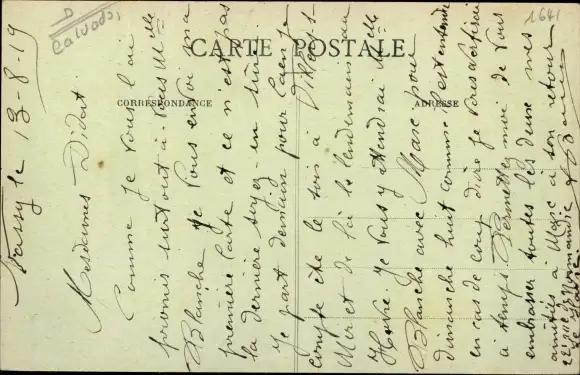 D
Calvados,
1641
CARTE POSTALE
CORRESPONDANCE
ADRESSE
Vassy le 13-8-19
Mesdames Didout
Comme je vous l'ai
promis surtout à vous Melle
Blanche je vous envoi ma
première carte et ce n'est pas
la dernière soyez-en sûre
Je part demain pour Caen je
compte être le soir à Villers-s-
Mer et de là le lendemain au
Havre. Je vous y attendrai Melle
Blanche avec Marc pour
dimanche huit comme c'est entendu
en cas de coup dire je vous
à temps. Permettez moi de vous
embrasser toutes les deux mes
amitiés à Marc à son retour
rue de Normandie